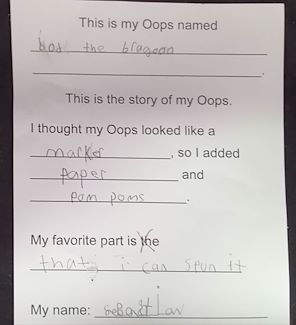 This is my Oops named
bob the bragoon
This is the story of my Oops.
I thought my Oops looked like a
marker, so I added
paper and
pom poms.
My favorite part is the
that i can spun it
My name: Sebastian